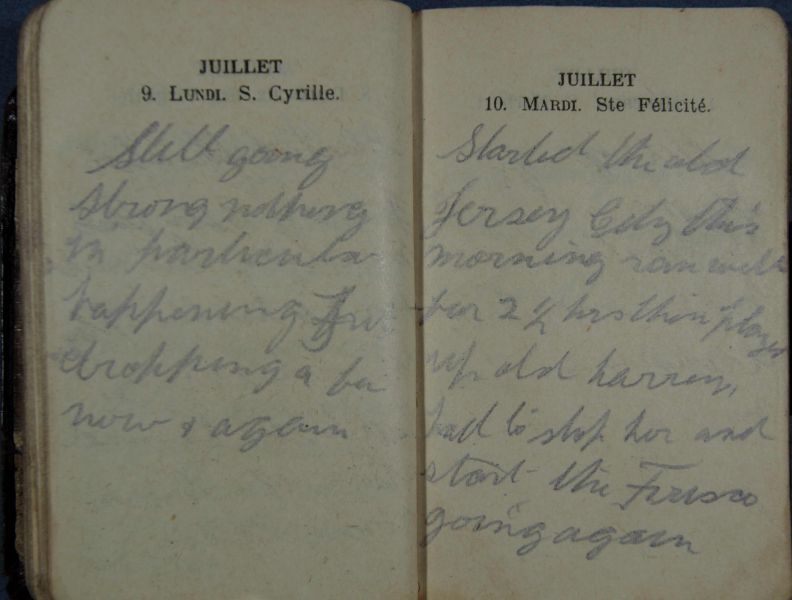 JUILLET
9. LUNDI. S. Cyrille.
Still going
strong nothing
in particular
happening Fritz
dropping a few
now & again
JUILLET
10. MARDI. Ste Félicité.
Started the old
Jersey City this
morning ran well
for 2½ hrs then played
up old harry,
had to stop her and
start the Frisco
going again